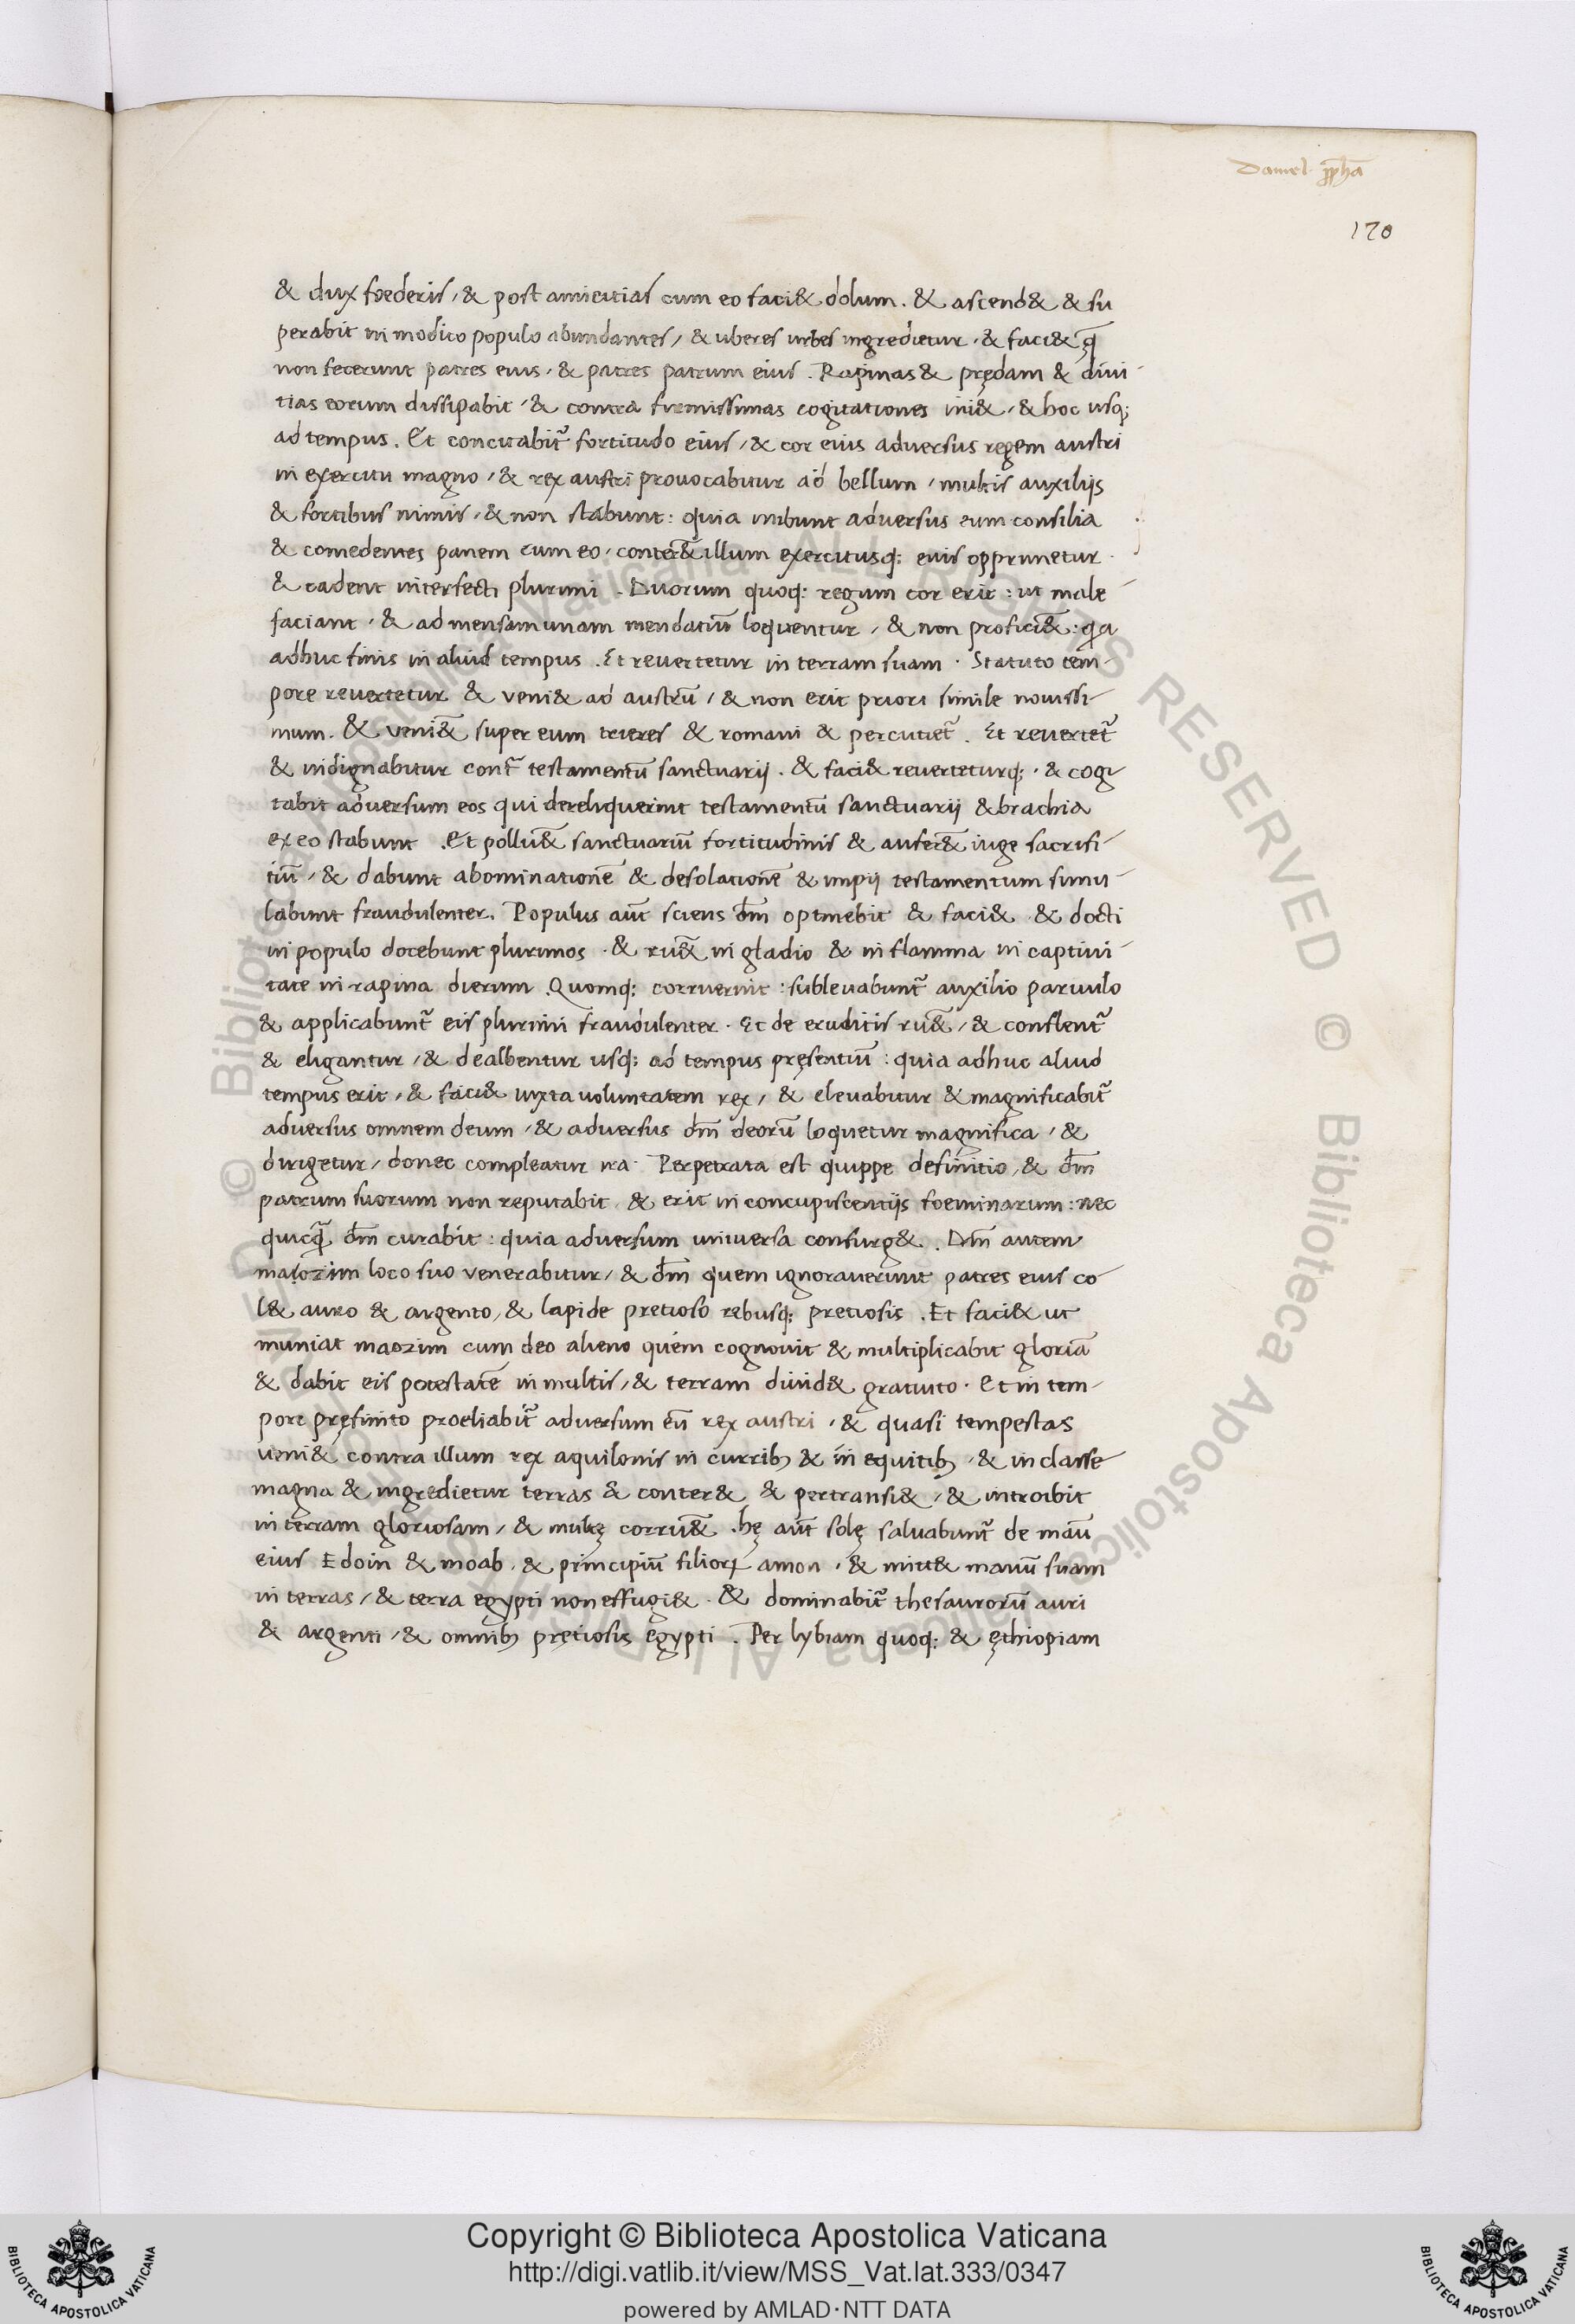 Daniel pp̄ha
170
& dux foederis, & post amicitias cum eo faci& dolum. & ascend& & su
perabit in modico populo abundantes, & uberes urbes ingredietur. & faci& q̨̄
non fecerunt patres eius, & patres patrum eius. Rapinas & prędam & divi-
tias eorum dissipabit, & contra firmissimas cogitationes ini&, & hoc usq;
ad tempus. Et concitabit̃ fortitudo eius, & cor eius adversus regem austri
in exercitu magno, & rex austri provocabitur ad bellum, multis auxiliis
& fortibus nimis, & non stabunt: quia inibunt adversus eum consilia
& comedentes panem cum eo, conter&̄ illum exercitusq; eius opprimetur.
& cadent interfecti plurimi. Duorum quoq; regum cor erit: ut male
faciant, & ad mensam unam mendatiū loquentur, & non profici&̄: qa
adhuc finis in aliud tempus. Et revertetur in terram suam. Statuto tem-
pore revertetur & veni& ad austrū, & non erit priori simile novissi-
mum. & veni&̄ super eum trieres & romani & percutiet̃. Et revertet̃
& indignabitur cont̃ testamentū sanctuarij. & faci& reverteturq;, & cogi
tabit adversum eos qui dereliquerint testamentū sanctuarij & brachia
ex eo stabunt. Et pollu&̄ sanctuariū fortitudinis & aufer&̄ iuge sacrifi-
tiū, & dabunt abominationē & desolationē & impij testamentum simu-
labunt fraudulenter. Populus aūt sciens d̄m optinebit & faci& & docti
in populo docebunt plurimos. & ru&̄ in gladio & in flamma in captivi-
tate in rapina dierum. Quomq; corruerint: sublevabunt̃ auxilio parvulo
& applicabunt̃ eis plurimi fraudulenter. Et de eruditis ru&̄, & conflent̃
& eligantur, & dealbentur usq; ad tempus pręfentiū: quia adhuc aliud
tempus erit, & faci& iuxta voluntatem rex, & elevabitur & magnificabit̃
adversus omnem deum, & adversus d̄m deorū loquetur magnifica, &
dirigetur, donec compleatur ira. Perpetrata est quippe definitio, & d̄m
patrum suorum non reputabit, & erit in concupiscentiis foeminarum: nec
quicq̄ d̄m curabit: quia adversum universa consurg&. D̄m autem
maozim loco suo venerabitur, & d̄m quem ignoraverunt patres eius co
l& auro & argento, & lapide pretioso rebusq; pretiosis. Et faci& ut
muniat maozim cum deo alieno quem cognovit & multiplicabit gloriā
& dabit eis potestatē in multis, & terram divid& gratuito. Et in tem-
pore pręfinito proeliabit̃ adversum eū rex austri, & quasi tempestas
veni& contra illum rex aquilonis in currib; & in equitib; & in classe
magna & ingredietur terras & conter& & pertransi&, & introibit
in terram gloriosam, & multę corru&̄. hę aūt solę salvabunt̃ de manū
eius Edoin & moab, & principiū filioꝝ amon, & mitt& manū suam
in terras, & terra egypti non effugi&. & dominabit̃ thesaurorū auri
& argenti, & omnib; pretiosis egypti. Per lybiam quoq; & ęthiopiam
© Biblioteca Apostolica Vaticana ALL RIGHTS RESERVED
BIBLIOTECA APOSTOLICA VATICANA
Copyright © Biblioteca Apostolica Vaticana
http://digi.vatlib.it/view/MSS_Vat.lat.333/0347
powered by AMLAD·NTT DATA
BIBLIOTECA APOSTOLICA VATICANA